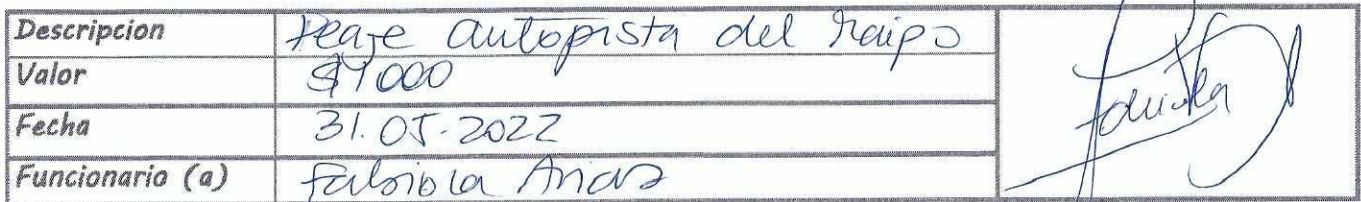 Descripcion Peaje autopista del Maipo
Valor $1000
Fecha 31.05.2022
Funcionario (a) Fabiola Arias